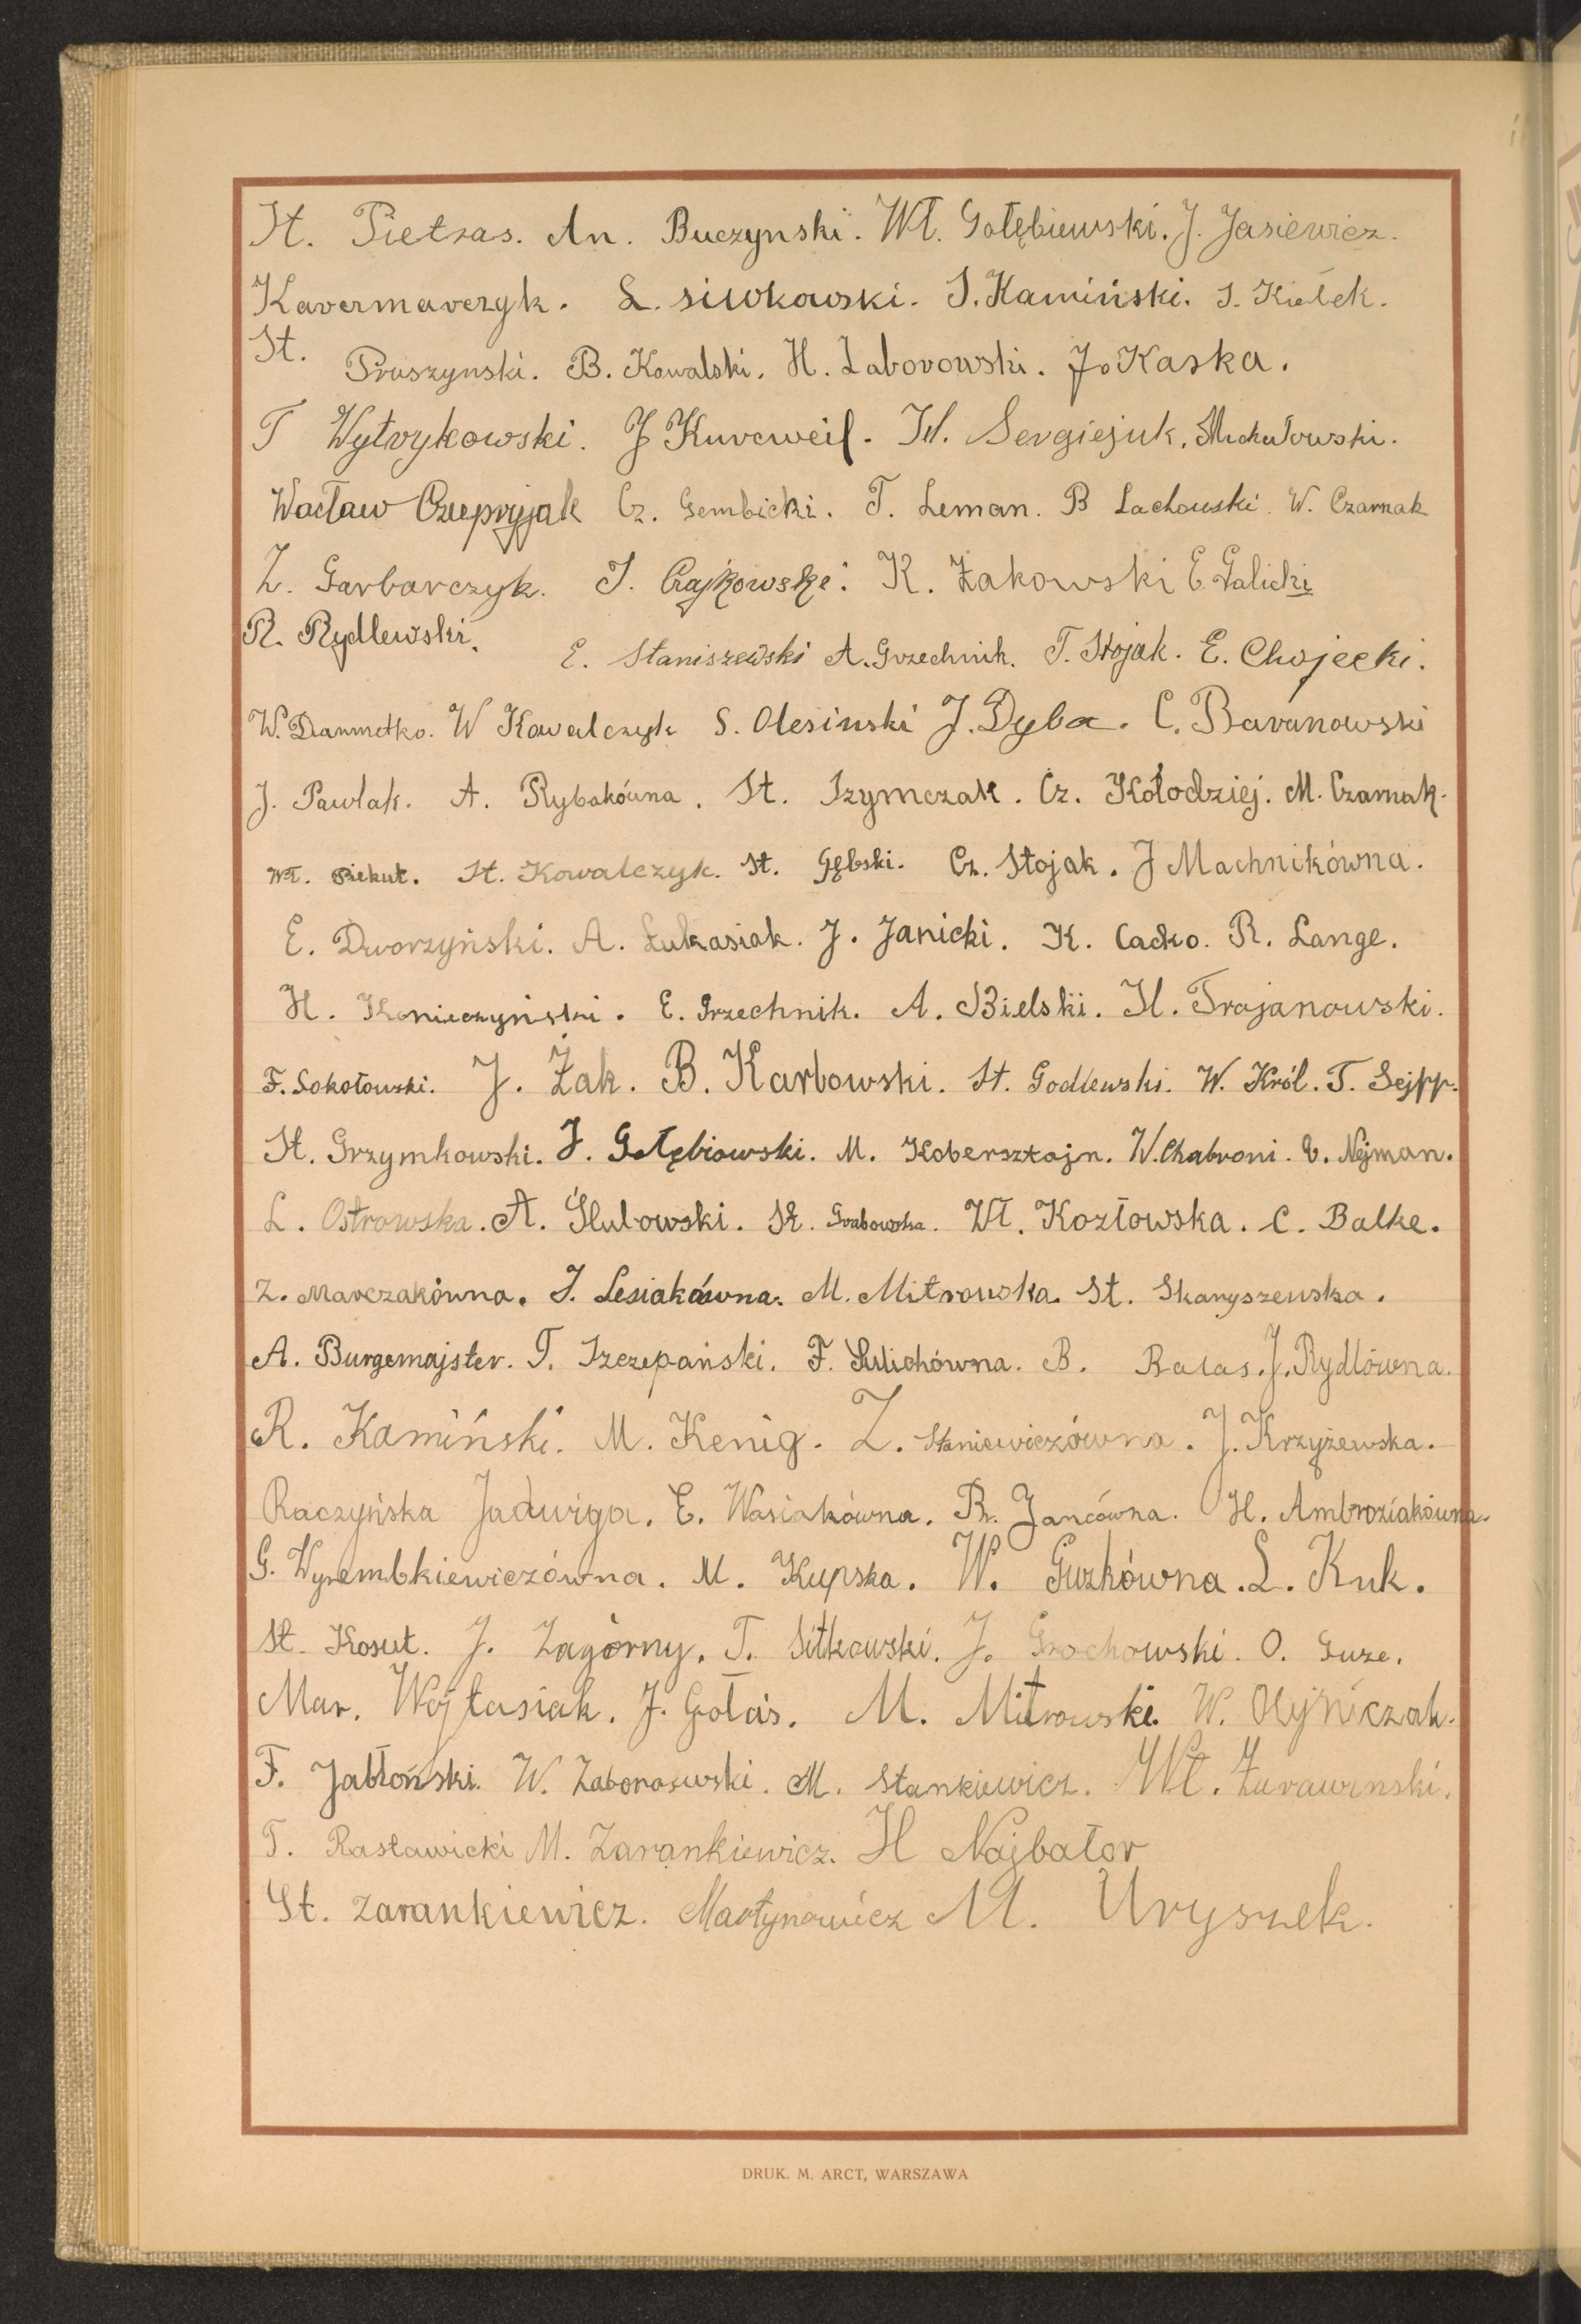 St. Pietras. An. Buczynski. Wł. Gołębiewski. J. Jasiewicz.
Kavermavczyk. L. Siwkowski. S. Kamiński. S. Kiełek.
St. Pruszynski. B. Kowalski. H. Zaborowski. J. Kaska.
T Wytrykowski. J Kurcweil. W. Sergiejuk. Michałowski.
Wacław Czepryjak Cz. Gembicki. T. Leman. B Lachowski. W. Czarnak
Z. Garbarczyk. J. Czajkowski. K. Żakowski E. Galicki
R. Rydlewski. E. Staniszewski A. Grzechnik. T. Stojak. E. Chojecki.
W. Danmetko. W Kowalczyk S. Olesinski J. Dyba. C. Baranowski
J. Pawlak. A. Rybakówna. St. Szymczak. Cz. Kołodziej. M. Czarnak.
Wł. Piekut. St. Kowalczyk. St. Gębski. Cz. Stojak. J Machnikówna.
E. Dworzyński. A. Łukasiak. J. Janicki. K. Cacko. R. Lange.
H. Konieczyński. E. Grzechnik. A. Bielski. H. Trojanowski.
F. Sokołowski. J. Żak. B. Karbowski. St. Godlewski. W. Król. T. Sejpp.
St. Grzymkowski. J. Gołębiowski. M. Kobersztajn. W. Chabroni. E. Nejman.
L. Ostrowska. A. Ślubowski. St. Grabowska. Wł. Kozłowska. C. Balke.
Z. Marczakówna. J. Lesiakówna. M. Mitrowska. St. Skaryszewska.
A. Burgemajster. T. Szczepański. F. Sulichówna. B. Balas. J. Rydlówna.
R. Kamiński. M. Kenig. Z. Staniewiczówna. J. Krzyżewska.
Raczyńska Jadwiga. E. Wasiakówna. R. Jancówna. H. Ambroziakówna.
G. Wyrembkiewiczówna. M. Kupska. W. Guzkówna. L. Kuk.
St. Kosut. J. Zagórny. T. Sitkowski. J. Grochowski. O. Guze.
Mar. Wojtasiak. J. Gołas. M. Mitrowski. W. Olejniczak.
F. Jabłoński. W. Zaborowski. M. Stankiewicz. Wł. Żurawinski.
T. Rasławicki M. Zarankiewicz. H Najbałor
St. Zarankiewicz. Martynowicz M. Uryszek.
DRUK. M. ARCT, WARSZAWA